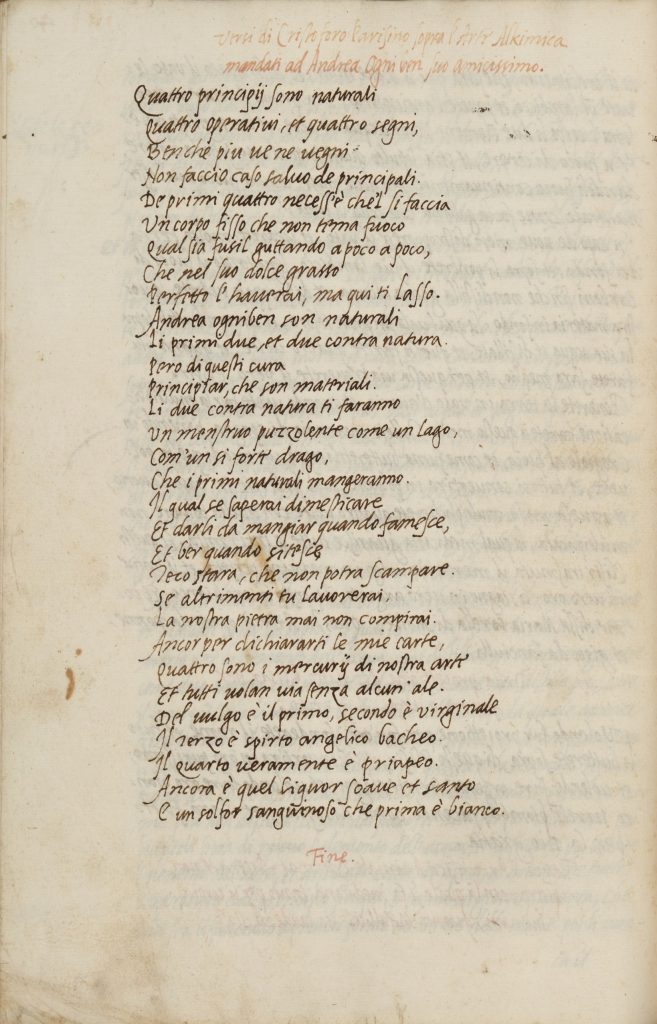 Versi di Cristoforo Parisino sopra l'Arte Alkimica
mandati ad Andrea Ogni ben suo amicissimo.
Quattro principij sono naturali
Quattro operativi, et quattro segni,
Benche piu ve ne vegni
Non faccio caso salvo de principali.
De primi quattro necess'è che'l si faccia
Un corpo fisso che non tema fuoco
Qual sia fusil guttando a poco a poco,
Che nel suo dolce grasso
Perfetto l'haverai, ma qui ti lasso.
Andrea ogniben son naturali
Li primi due, et due contra natura.
Pero di questi cura
Principiar, che son materiali.
Li due contra natura ti faranno
Un menstruo puzzolente come un lago,
Com'un si forte drago,
Che i primi naturali mangeranno.
Il qual se saperai dimesticare
Et darli da mangiar quando famesce,
Et ber quando sitesce
Teco stara, che non potra scampare.
Se altrimenti tu lavorerai,
La nostra pietra mai non compirai.
Ancor per dichiararti le mie carte,
Quattro sono i mercurij di nostra arte
Et tutti volan via senza alcun' ale.
Del vulgo è il primo, secondo è virginale
Il terzo è spirto angelico bacheo.
Il quarto veramente è priapeo.
Ancora è quel liquor soave et santo
E un solfor sanguinoso che prima è bianco.
Fine.